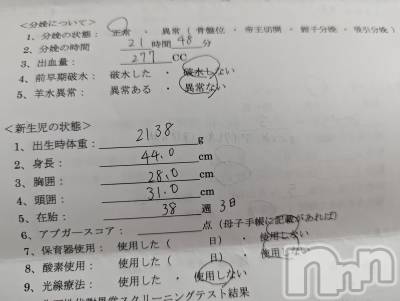 <分娩について>
1、分娩の状態: 正常 ・ 異常（骨盤位 ・ 帝王切開 ・ 鉗子分娩 ・ 吸引分娩）
2、分娩の時間 21 時間 48 分
3、出血量: 277 CC
4、前早期破水: 破水した ・ 破水しない
5、羊水異常: 異常ある ・ 異常ない
<新生児の状態>
1、出生時体重: 2138 g
2、身長: 44.0 cm
3、胸囲: 28.0 cm
4、頭囲: 31.0 cm
5、在胎: 38 週 3日
6、アプガースコア: 点（母子手帳に記載があれば）
7、保育器使用: 使用した（ 日）・ 使用しない
8、酸素使用: 使用した（ 日）・ 使用しない
9、光線療法: 使用した ・ 使用しない
スクリーニングテスト結果